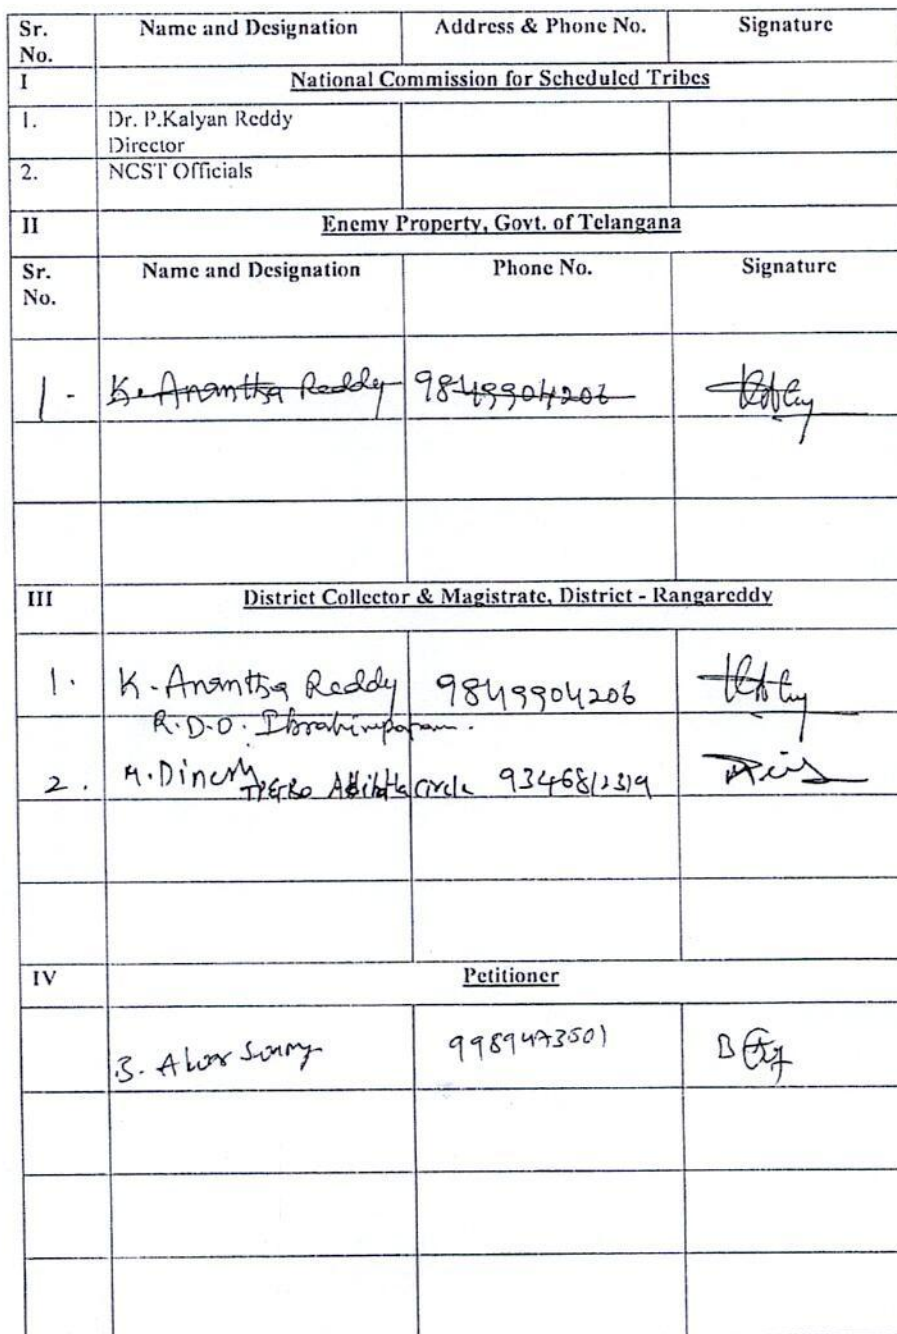 Sr. No. Name and Designation Address & Phone No. Signature
I National Commission for Scheduled Tribes
1. Dr. P.Kalyan Reddy
Director
2. NCST Officials
II Enemy Property, Govt. of Telangana
Sr. No. Name and Designation Phone No. Signature
1. K. Anantha Reddy 9849904206
III District Collector & Magistrate, District - Rangareddy
1. K. Anantha Reddy 9849904206
R.D.O. Ibrahimpatnam.
2. M. Dinesh Circle 9346812319
IV Petitioner
9989473501